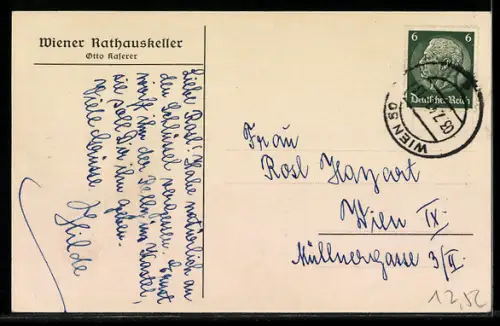 Wiener Rathauskeller
Otto Kaserer
Liebe Rosl! Habe natürlich an
den Schlüssel vergessen.
wirft ihn der in Kasten,
sie soll Dir ihn geben.
Viele Grüsse
Hilde
6 6
Deutsches Reich
WIEN 50
Frau
Rosl Hazart
Wien IX.
Müllnergasse 3/II.
12,52